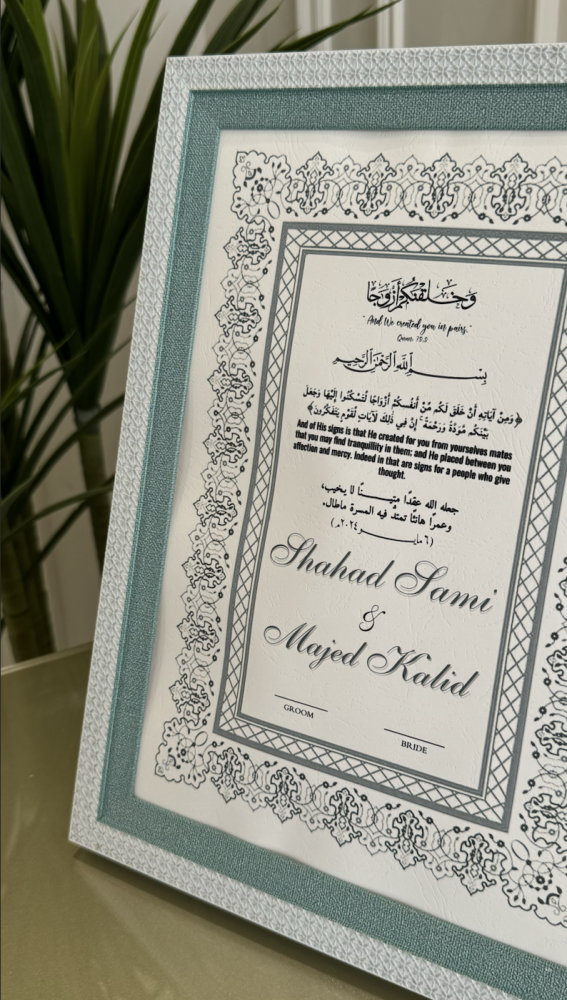 وَخَلَقْنَاكُمْ أَزْوَاجًا
"And We created you in pairs."
Quran 78:8
بِسْمِ اللَّهِ الرَّحْمَنِ الرَّحِيمِ
﴿وَمِنْ آيَاتِهِ أَنْ خَلَقَ لَكُم مِّنْ أَنفُسِكُمْ أَزْوَاجًا لِّتَسْكُنُوا إِلَيْهَا وَجَعَلَ
بَيْنَكُم مَّوَدَّةً وَرَحْمَةً ۚ إِنَّ فِي ذَٰلِكَ لَآيَاتٍ لِّقَوْمٍ يَتَفَكَّرُونَ﴾
And of His signs is that He created for you from yourselves mates
that you may find tranquillity in them; and He placed between you
affection and mercy. Indeed in that are signs for a people who give
thought.
جعله الله عقدًا متينًا لا يخيب،
وعمرا هانئا تمتدّ فيه المسرة ماطال.
(٦ مايو ٢٠٢٤م)
Shahad Sami
&
Majed Kalid
GROOM
BRIDE